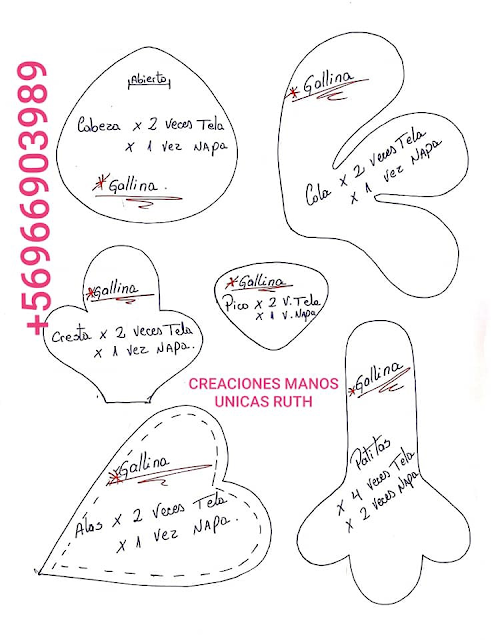 +56966903989
Abierto
Cabeza x 2 veces Tela
x 1 vez NAPA
*Gallina.
*Gallina
Cola x 2 veces Tela
x 1 vez NAPA
*Gallina
Cresta x 2 veces Tela
x 1 vez NAPA.
*Gallina
Pico x 2 V. Tela
x 1 V. Napa
CREACIONES MANOS
UNICAS RUTH
*Gallina
Alas x 2 veces Tela
x 1 vez NAPA.
*Gallina
Patitas
x 4 veces Tela
x 2 veces NAPA